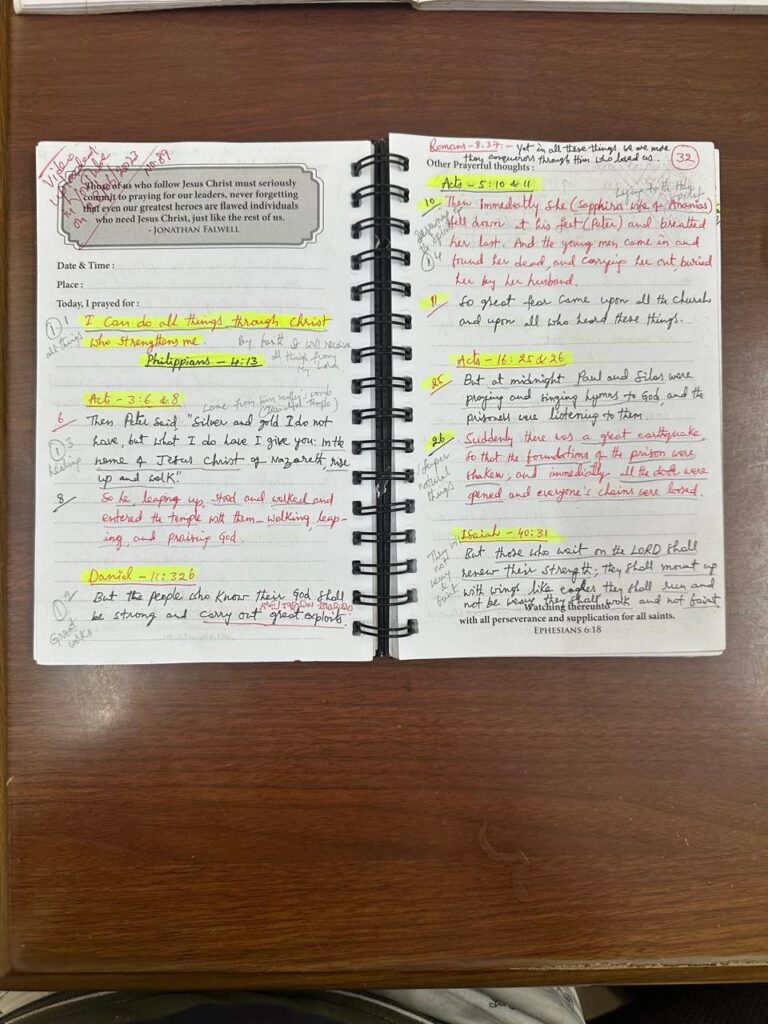 Video
uploaded
in YouTube
on 2023
No. 89
Those of us who follow Jesus Christ must seriously
commit to praying for our leaders, never forgetting
that even our greatest heroes are flawed individuals
who need Jesus Christ, just like the rest of us.
- JONATHAN FALWELL
Date & Time :
Place :
Today, I prayed for :
1 1 I can do all things through Christ
all things who strengthens me By faith I will receive
Philippians - 4:13 all things from
my Lord
Acts - 3:6 & 8 Lame from him mother's womb
(Beautiful Temple)
6 Then Peter said, "Silver and gold I do not
1 3 have, but what I do have I give you: In the
healing name of Jesus Christ of Nazareth, rise
up and walk."
8 So he, leaping up, stood and walked and
entered the temple with them - walking, leap-
ing, and praising God.
Daniel - 11:32b
1 2 But the people who know their God shall
Great works be strong and carry out great exploits.
Romans - 8:37 :- Yet in all these things we are more
than conquerors through Him who loved us. 32
Other Prayerful thoughts :
Acts - 5:10 & 11 Lying to the Holy Spirit
10 Then immediately she (Sapphira wife of Ananias)
fell down at his feet (Peter) and breathed
her last. And the young men came in and
1 4 found her dead, and carrying her out, buried
her by her husband.
11 So great fear came upon all the church
and upon all who heard these things.
Acts - 16:25 & 26
25 But at midnight Paul and Silas were
praying and singing hymns to God, and the
prisoners were listening to them
26 Suddenly there was a great earthquake,
so that the foundations of the prison were
shaken, and immediately all the doors were
opened and everyone's chains were loosed.
Super natural things
Isaiah - 40:31
They'll not weary & faint But those who wait on the LORD shall
renew their strength; they shall mount up
with wings like eagles they shall run and
not be weary they shall walk and not faint
Watching thereunto
with all perseverance and supplication for all saints.
EPHESIANS 6:18